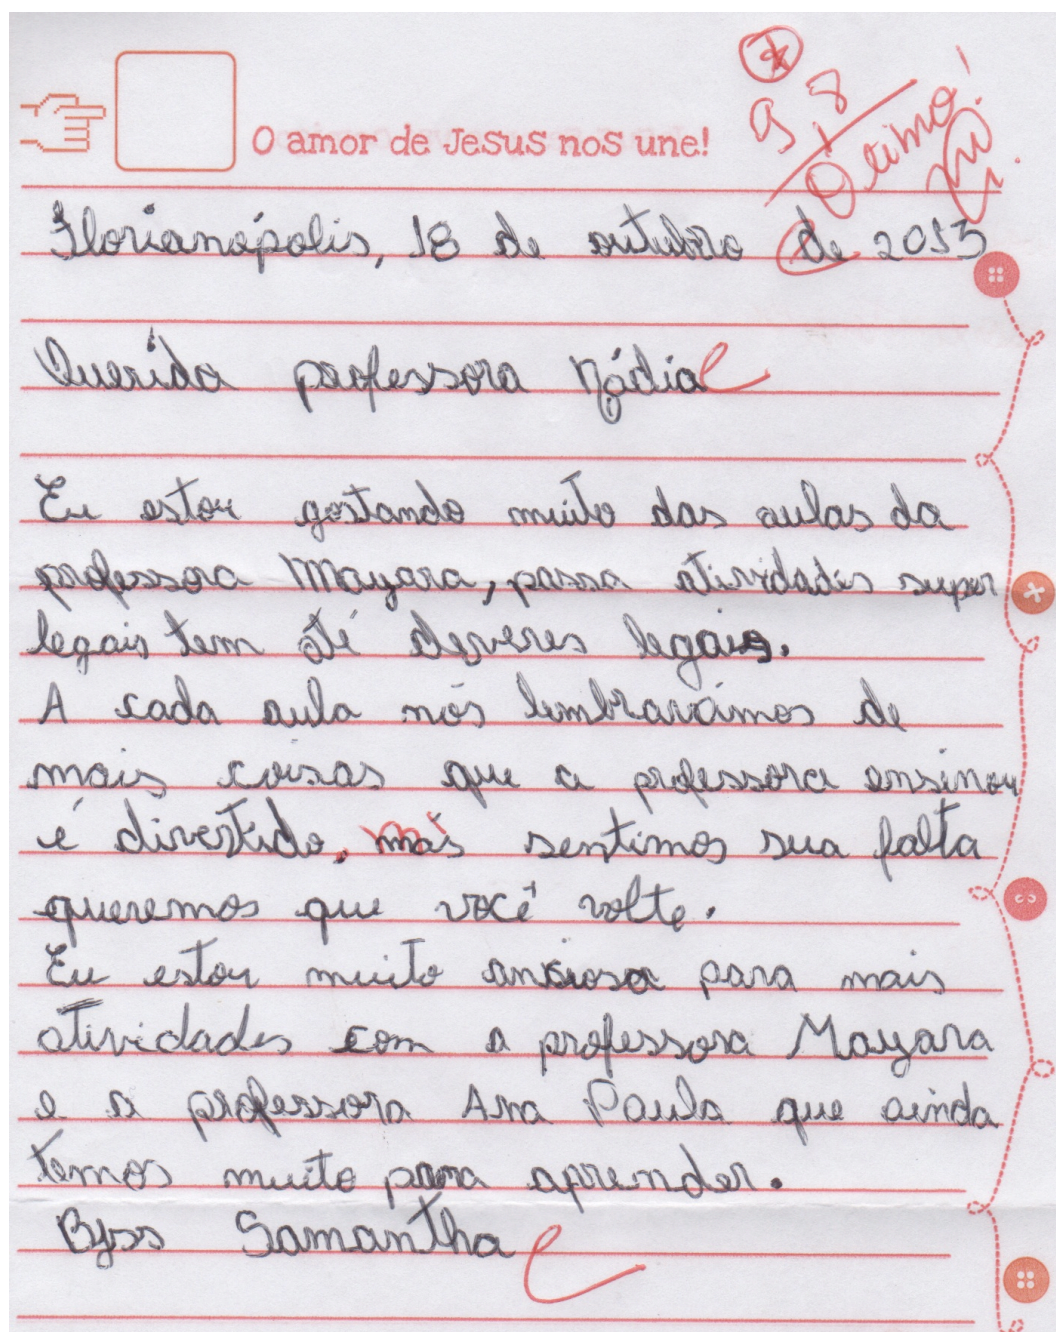 9,8
Ótimo!
O amor de Jesus nos une!
Florianópolis, 18 de outubro de 2013
Querida professora Nádia
Eu estou gostando muito das aulas da
professora Mayara, passa atividades super
legais tem até deveres legais.
A cada aula nós lembravámos de
mais coisas que a professora ensinou
é divertido, mas sentimos sua falta
queremos que você volte.
Eu estou muito ansiosa para mais
atividades com a professora Mayara
e a professora Ana Paula que ainda
temos muito para aprender.
Bjss Samantha